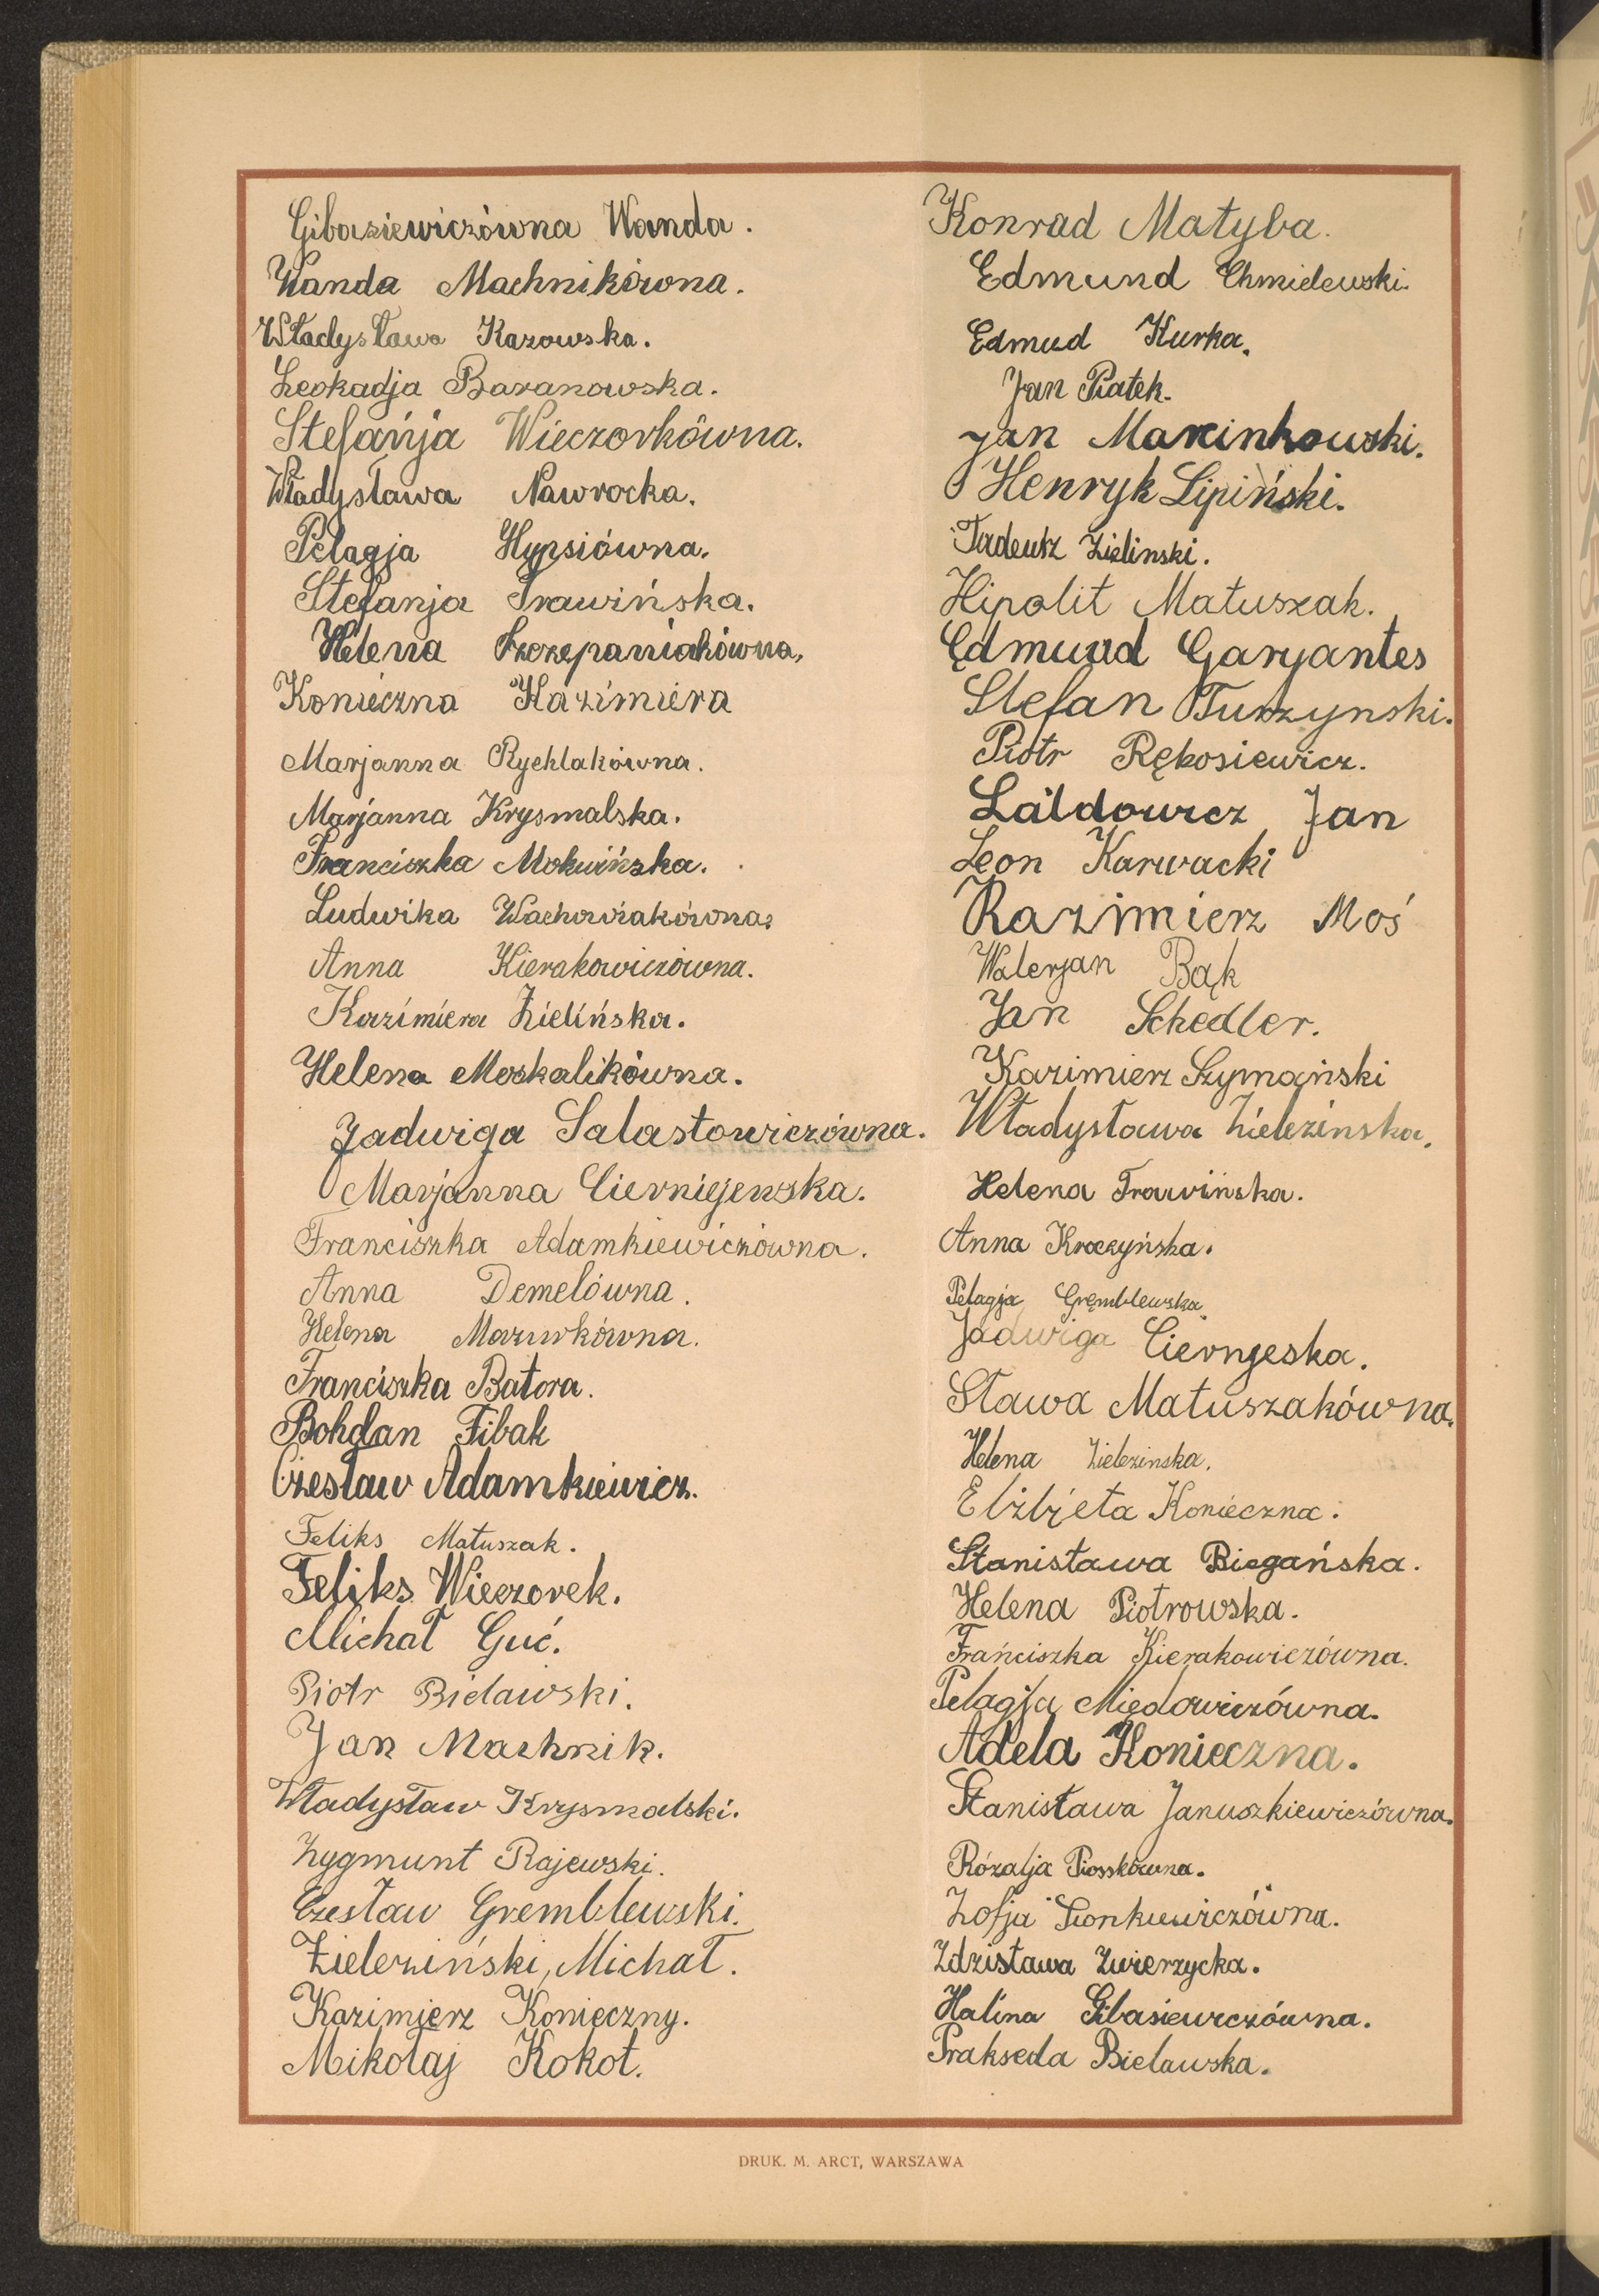 Gibasiewiczówna Wanda.
Wanda Machnikówna.
Władysława Kazowska.
Leokadja Baranowska.
Stefanja Wieczorkówna.
Władysława Nawrocka.
Pelagja Hypsiówna.
Stefanja Trawińska.
Helena Szczepaniakówna,
Konieczna Kazimiera
Marjanna Rychlakówna.
Marjanna Krysmalska.
Franciszka Mokwińska.
Ludwika Wachowiakówna.
Anna Kierakowiczówna.
Kazimiera Zielińska.
Helena Moskalikówna.
Jadwiga Salastowiczówna.
Marjanna Cierniejewska.
Franciszka Adamkiewiczówna.
Anna Demelówna.
Helena Mazurkówna.
Franciszka Batora.
Bohdan Fibak
Czesław Adamkiewicz.
Feliks Matuszak.
Feliks Wieczorek.
Michał Guć.
Piotr Bielawski.
Jan Machnik.
Władysław Krysmalski.
Zygmunt Rajewski.
Czesław Gremblewski.
Zieleziński, Michał.
Kazimierz Konieczny.
Mikołaj Kokot.
Konrad Matyba.
Edmund Chmielewski.
Edmud Kurka.
Jan Piatek.
Jan Marcinkowski.
Henryk Lipiński.
Tadeusz Zielinski.
Hipolit Matuszak.
Edmund Garyantes
Stefan Turzynski.
Piotr Rękosiewicz.
Jan
Leon Karwacki
Kazimierz Moś
Walerjan Bąk
Jan Schedler.
Kazimierz Szymański
Władysława Zielezinska.
Helena Trawińska.
Anna Kroczyńska.
Pelagja Gremblewska
Jadwiga Cierngeska.
Sława Matuszakówna.
Helena Zielezinska.
Elżbjeta Konieczna.
Stanisława Biegańska.
Helena Piotrowska.
Franciszka Kierakowiczówna.
Pelagja Miedowiczówna.
Adela Konieczna.
Stanisława Januszkiewiczówna.
Rózalja Piosskówna.
Zofja Sionkiewiczówna.
Zdzisława Zwierzycka.
Halina Gibasiewiczówna.
Prakseda Bielawska.
DRUK. M. ARCT, WARSZAWA